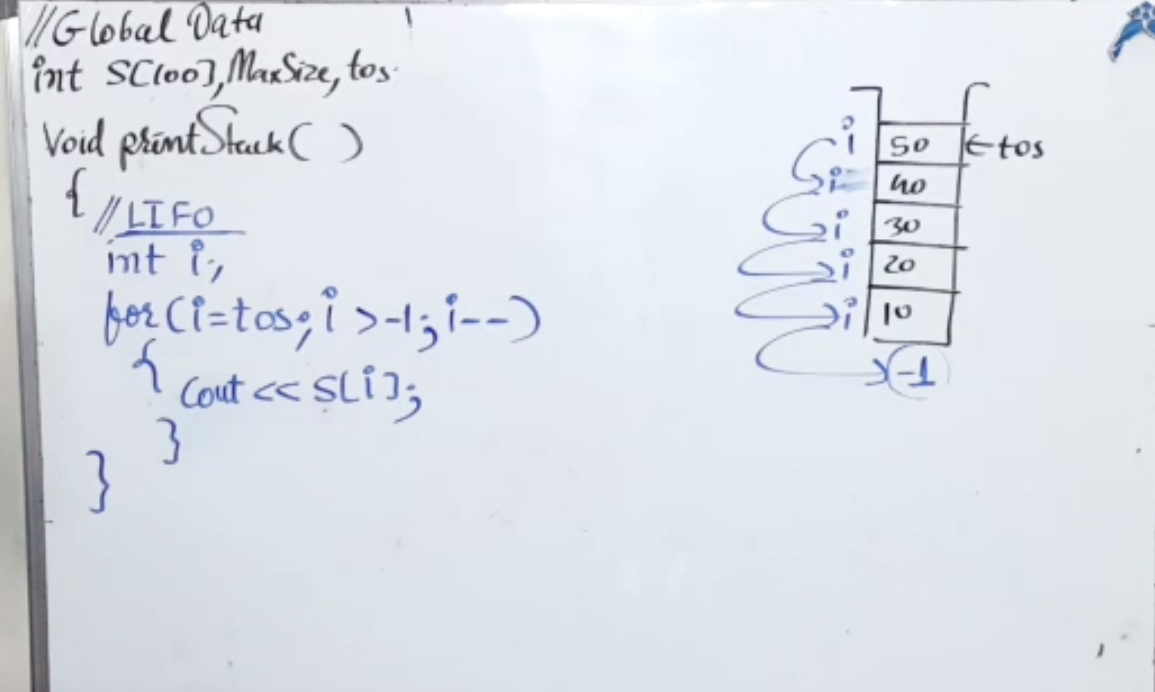 //Global Data
int S[100], MaxSize, tos.
Void printStack( )
{
//LIFO
int i;
for(i=tos; i >-1; i--)
{
Cout << S[i];
}
}
i 50 ←tos
i 40
i 30
i 20
i 10
-1